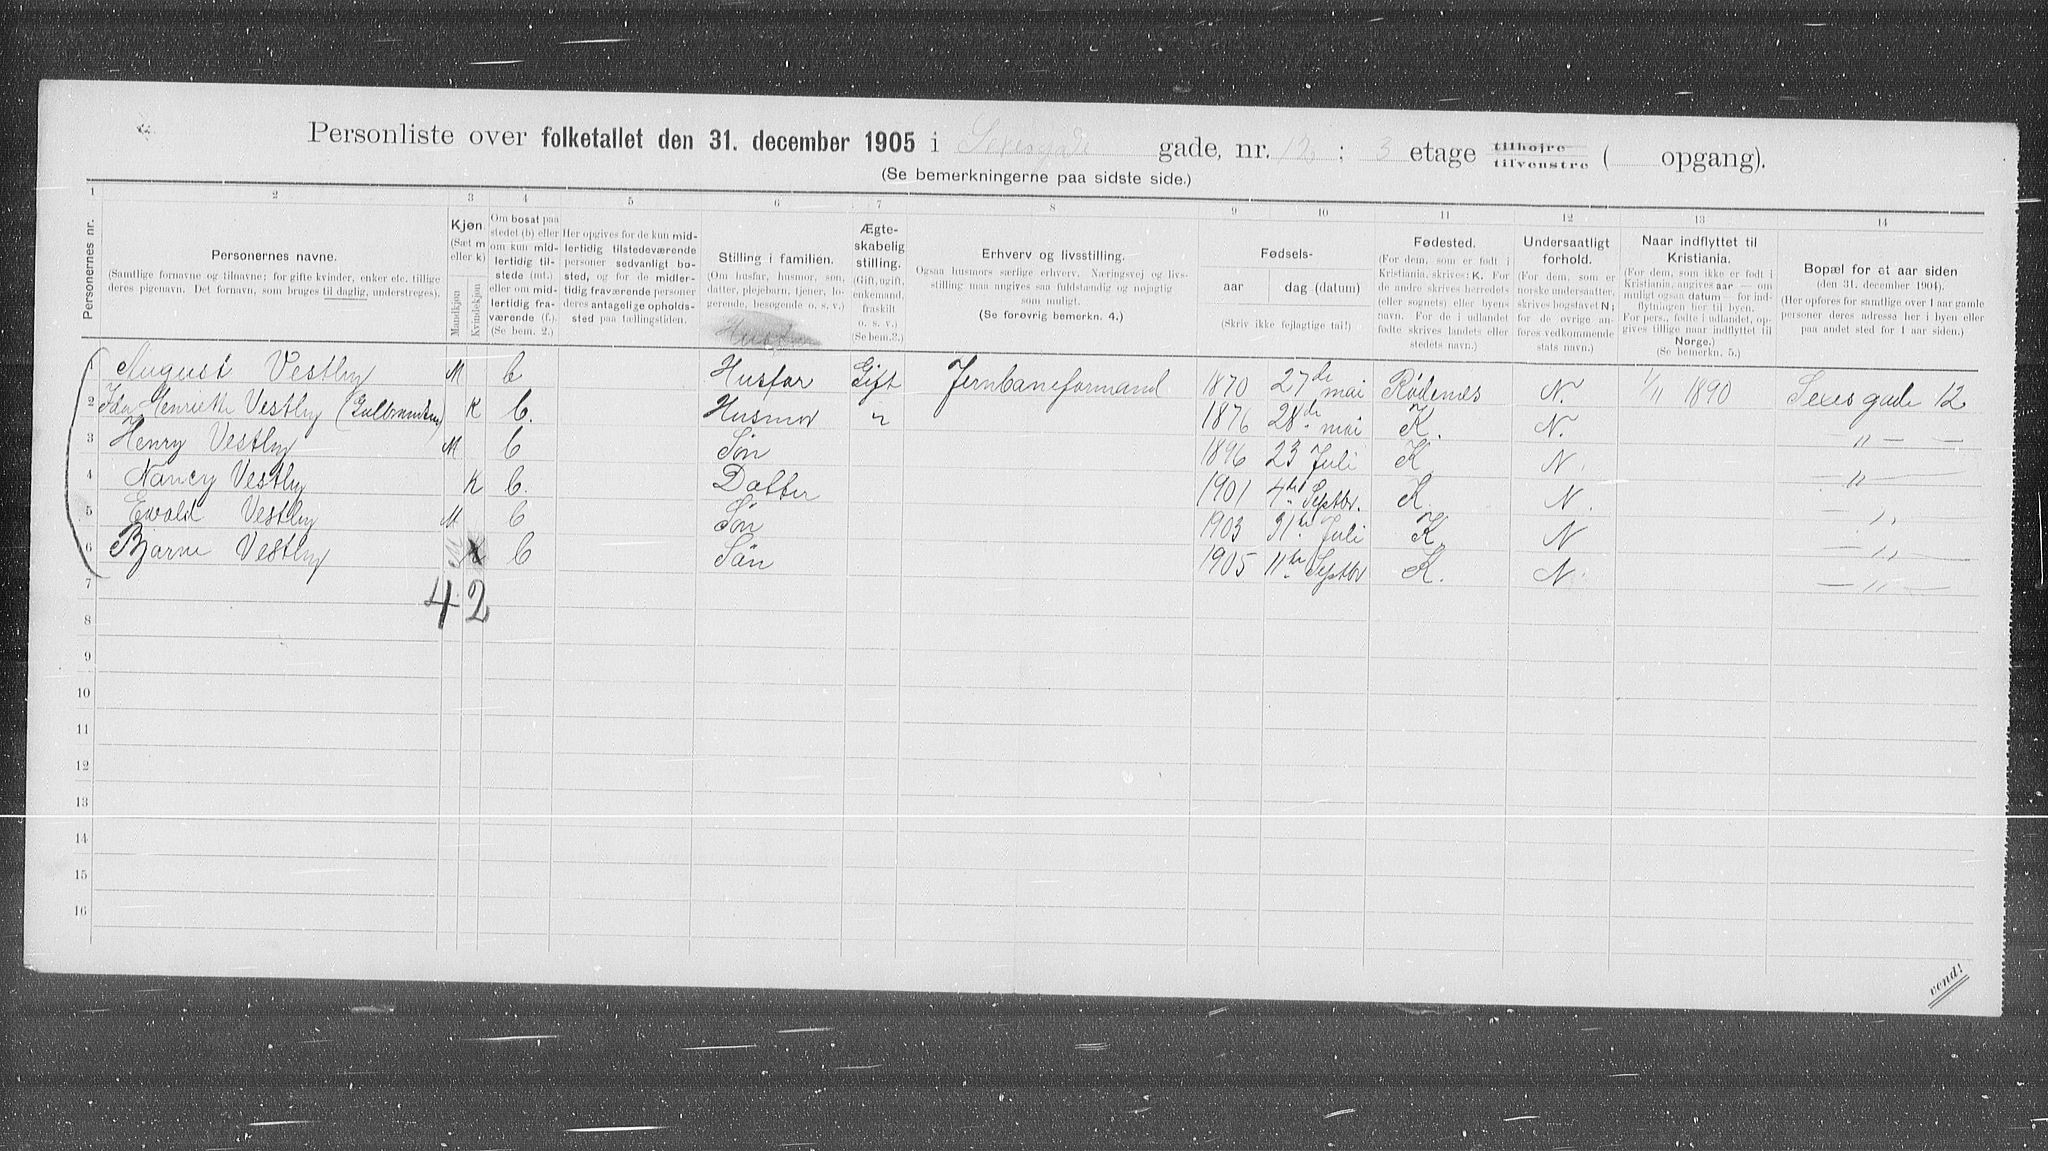 Personliste over folketallet den 31. december 1905 i Sexesgade gade, nr. 12 ; 3 etage tilhøjre tilvenstre ( opgang).
(Se bemerkningerne paa sidste side.)
1 2 3 4 5 6 7 8 9 10 11 12 13 14
Personernes nr.
Personernes navne.
(Samtlige fornavne og tilnavne; for gifte kvinder, enker etc. tillige
deres pigenavn. Det fornavn, som bruges til daglig, understreges).
Kjøn.
(Sæt m
eller k)
Mandkjøn
Kvindekjøn
Om bosat paa
stedet (b) eller
om kun mid-
lertidig til-
stede (mt.)
eller om mid-
lertidig fra-
værende (f.).
(Se bem. 2.)
Her opgives for de kun mid-
lertidig tilstedeværende
personer sedvanligt bo-
sted, og for de midler-
tidig fraværende personer
deres antagelige opholds-
sted paa tællingstiden.
Stilling i familien.
(Om husfar, husmor, søn,
datter, plejebarn, tjener, lo-
gerende, besøgende o. s. v.)
Ægte-
skabelig
stilling.
(Gift, ugift,
enkemand,
fraskilt
o. s. v.)
(Se bem.3.)
Erhverv og livsstilling.
Ogsaa husmors særlige erhverv. Næringsvej og livs-
stilling maa angives saa fuldstændig og nøjagtig
som muligt.
(Se forøvrig bemerkn. 4.)
Fødsels-
aar dag (datum)
(Skriv ikke fejlagtige tal!)
Fødested.
(For dem, som er født i
Kristiania, skrives: K. For
de andre skrives herredets
(eller sognets) eller byens
navn. For de i udlandet
fødte skrives landets eller
stedets navn.)
Undersaatligt
forhold.
(For dem, som er
norske undersaatter,
skrives bogstavet N;
for de øvrige an-
føres vedkommende
stats navn.)
Naar indflyttet til
Kristiania.
(For dem, som ikke er født i
Kristiania, angives aar — om
muligt ogsaa datum — for ind-
flytningen her til byen.
For pers., fødte i udlandet, op-
gives tillige naar indflyttet til
Norge.)
(Se bemerkn. 5.)
Bopæl for et aar siden
(den 31. december 1904).
(Her opføres for samtlige over 1 aar gamle
personer deres adresse her i byen eller
paa andet sted for 1 aar siden.)
1 August Vestby M b Husfar Gift Jernbaneformand 1870 27de mai Rødenes N. 1/11 1890 Sexesgade 12
2 Ida Henriette Vestby (Gulbrandsen) K b. Husmor " 1876 28de mai K. N. — " —
3 Henry Vestby M b Søn 1896 23 Juli K N. — " —
4 Nancy Vestby K b. Datter 1901 4de Septbr. K N. — " —
5 Ewald Vestby M b Søn 1903 31te Juli K. N — " —
6 Bjarne Vestby M b Søn 1905 11te Septbr K. N. — " —
7
4 2
8
9
10
11
12
13
14
15
16
vend!